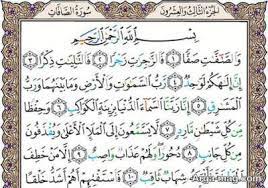 الجزء الثالث والعشرون سورة الصافات
بسم الله الرحمن الرحيم
والصافات صفا ۝١ فالزاجرات زجرا ۝٢ فالتاليات ذكرا ۝٣
إن إلهكم لواحد ۝٤ رب السموات والأرض وما بينهما ورب
المشارق ۝٥ إنا زينا السماء الدنيا بزينة الكواكب ۝٦ وحفظا
من كل شيطان مارد ۝٧ لا يسمعون إلى الملإ الأعلى ويقذفون
من كل جانب ۝٨ دحورا ولهم عذاب واصب ۝٩ إلا من خطف